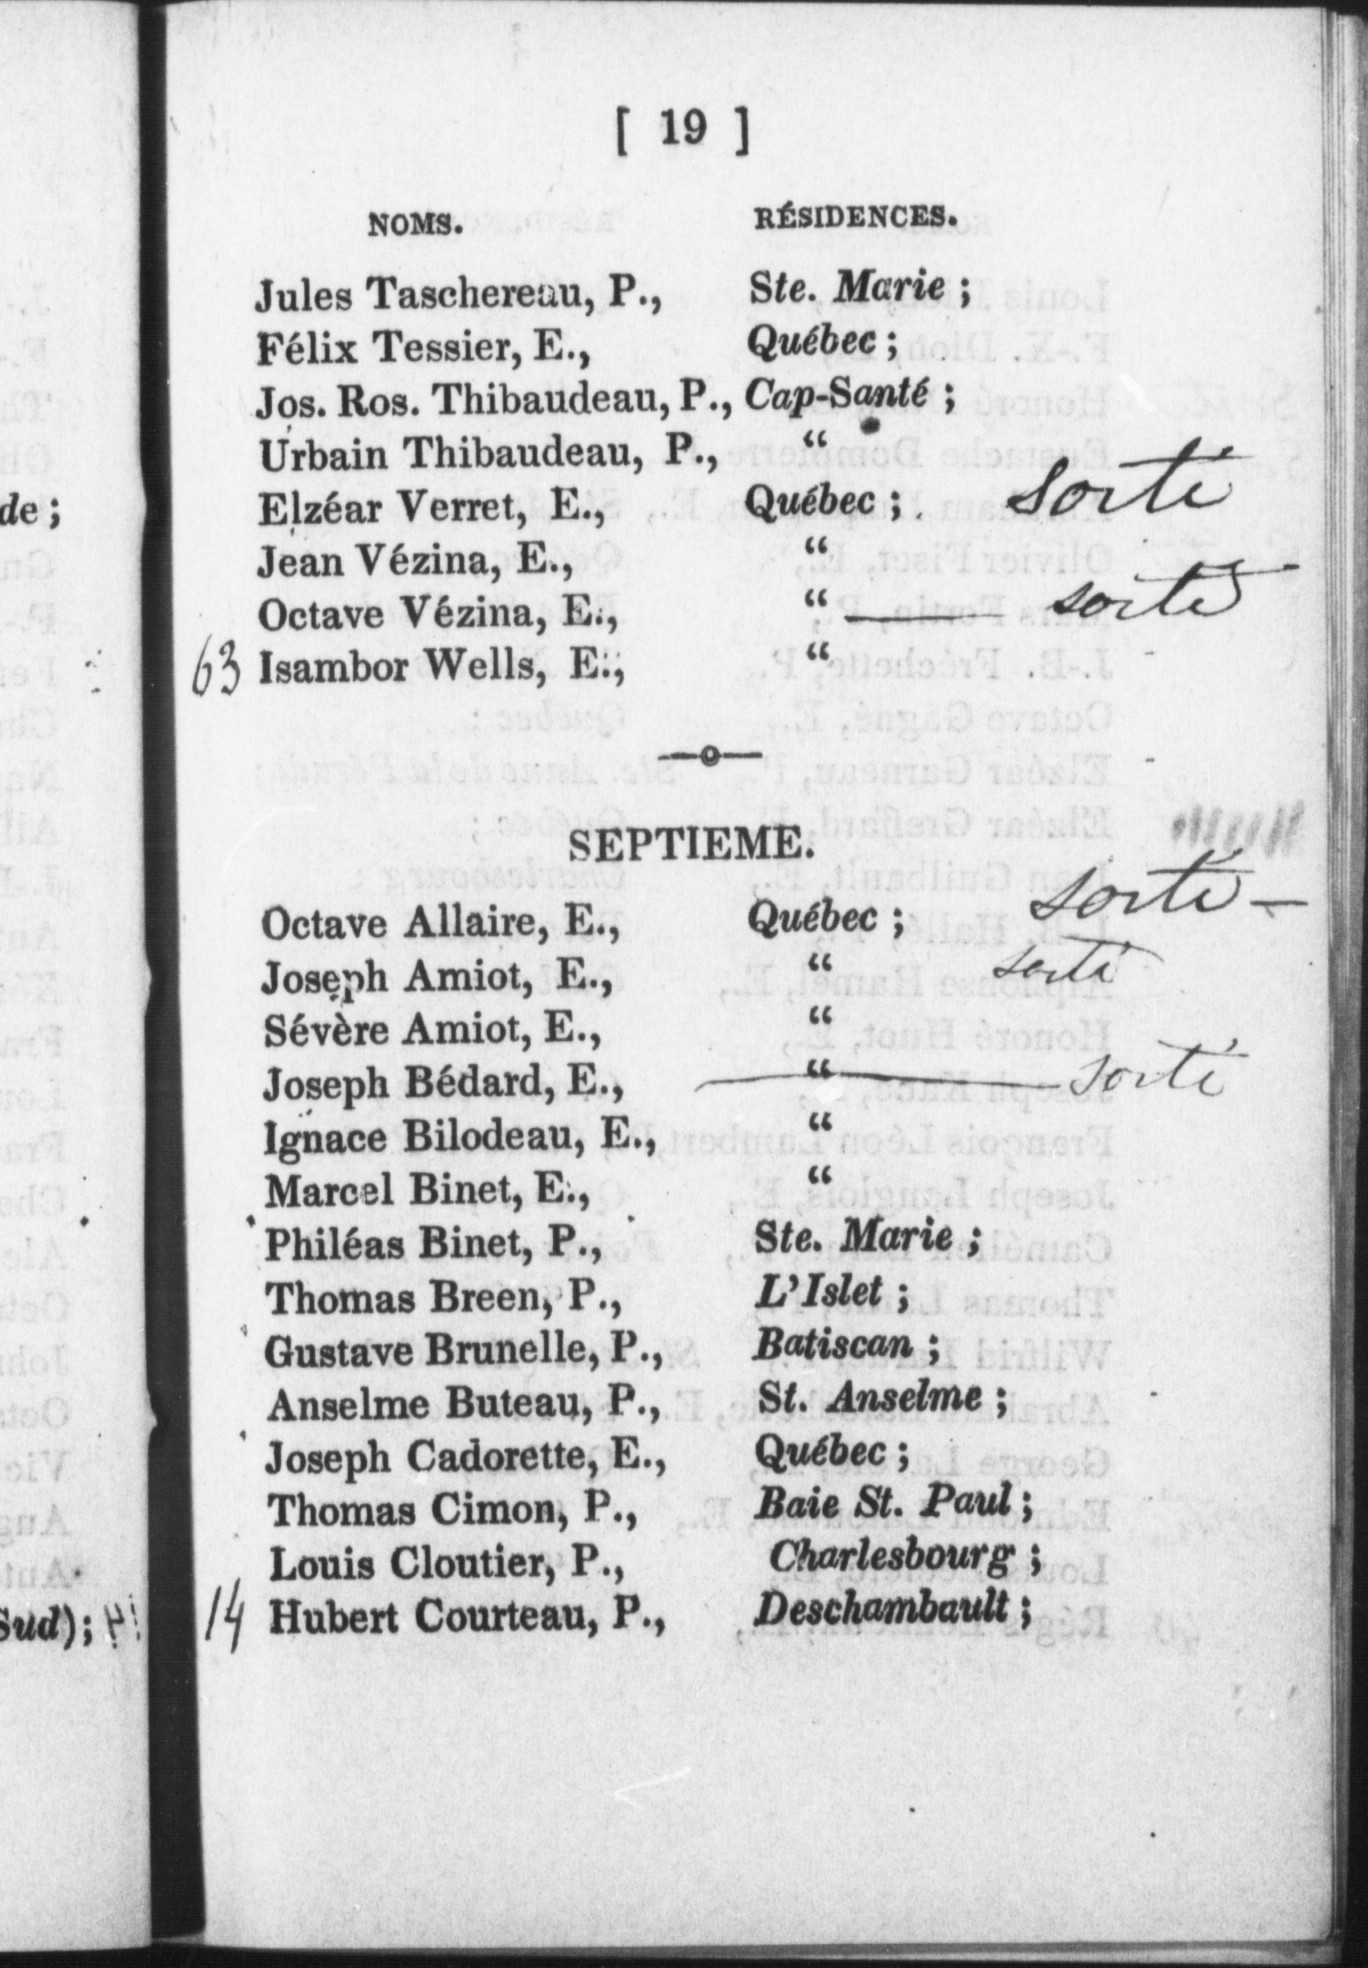 [ 19 ]
NOMS. RÉSIDENCES.
Jules Taschereau, P., Ste. Marie ;
Félix Tessier, E., Québec ;
Jos. Ros. Thibaudeau, P., Cap-Santé ;
Urbain Thibaudeau, P., “
Elzéar Verret, E., Québec ; sorti
Jean Vézina, E., “
Octave Vézina, E., “ sorti
63 Isambor Wells, E., “
SEPTIEME.
Octave Allaire, E., Québec ; sorti —
Joseph Amiot, E., “ sorti
Sévère Amiot, E., “
Joseph Bédard, E., “ sorti
Ignace Bilodeau, E., “
Marcel Binet, E., “
Philéas Binet, P., Ste. Marie ;
Thomas Breen, P., L’Islet ;
Gustave Brunelle, P., Batiscan ;
Anselme Buteau, P., St. Anselme ;
Joseph Cadorette, E., Québec ;
Thomas Cimon, P., Baie St. Paul ;
Louis Cloutier, P., Charlesbourg ;
14 Hubert Courteau, P., Deschambault ;
de ;
Sud) ;